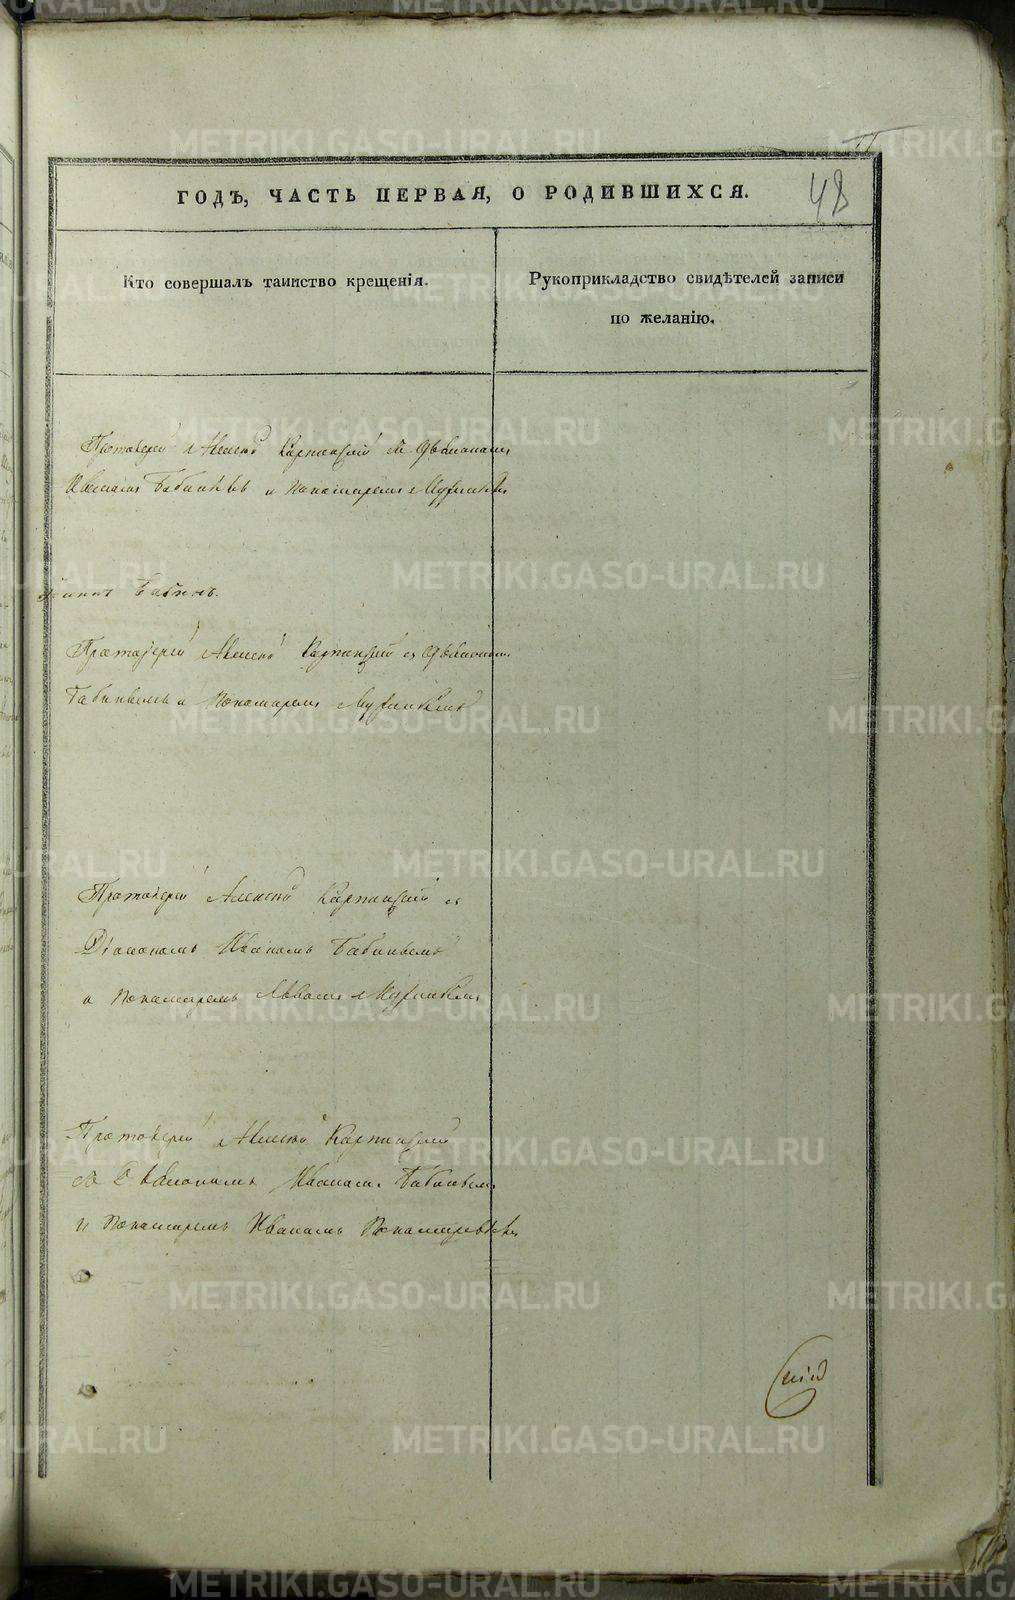 48
ГОДЪ, ЧАСТЬ ПЕРВАЯ, О РОДИВШИХСЯ.
Кто совершалъ таинство крещенія.
Рукоприкладство свидѣтелей записи
по желанію.
Протоіерей Алексѣй Карпинскій съ Діакономъ
Иваномъ Бабинымъ и Пономаремъ
Бабинъ.
Протоіерей Алексѣй Карпинскій съ Діакономъ
Бабинымъ и Пономаремъ
Протоіерей Алексѣй Карпинскій съ
Діакономъ Иваномъ Бабинымъ
и Пономаремъ Львомъ
Протоіерей Алексѣй Карпинскій
съ Діакономъ Иваномъ Бабинымъ
и Пономаремъ Иваномъ Пономаревымъ
METRIKI.GASO-URAL.RU